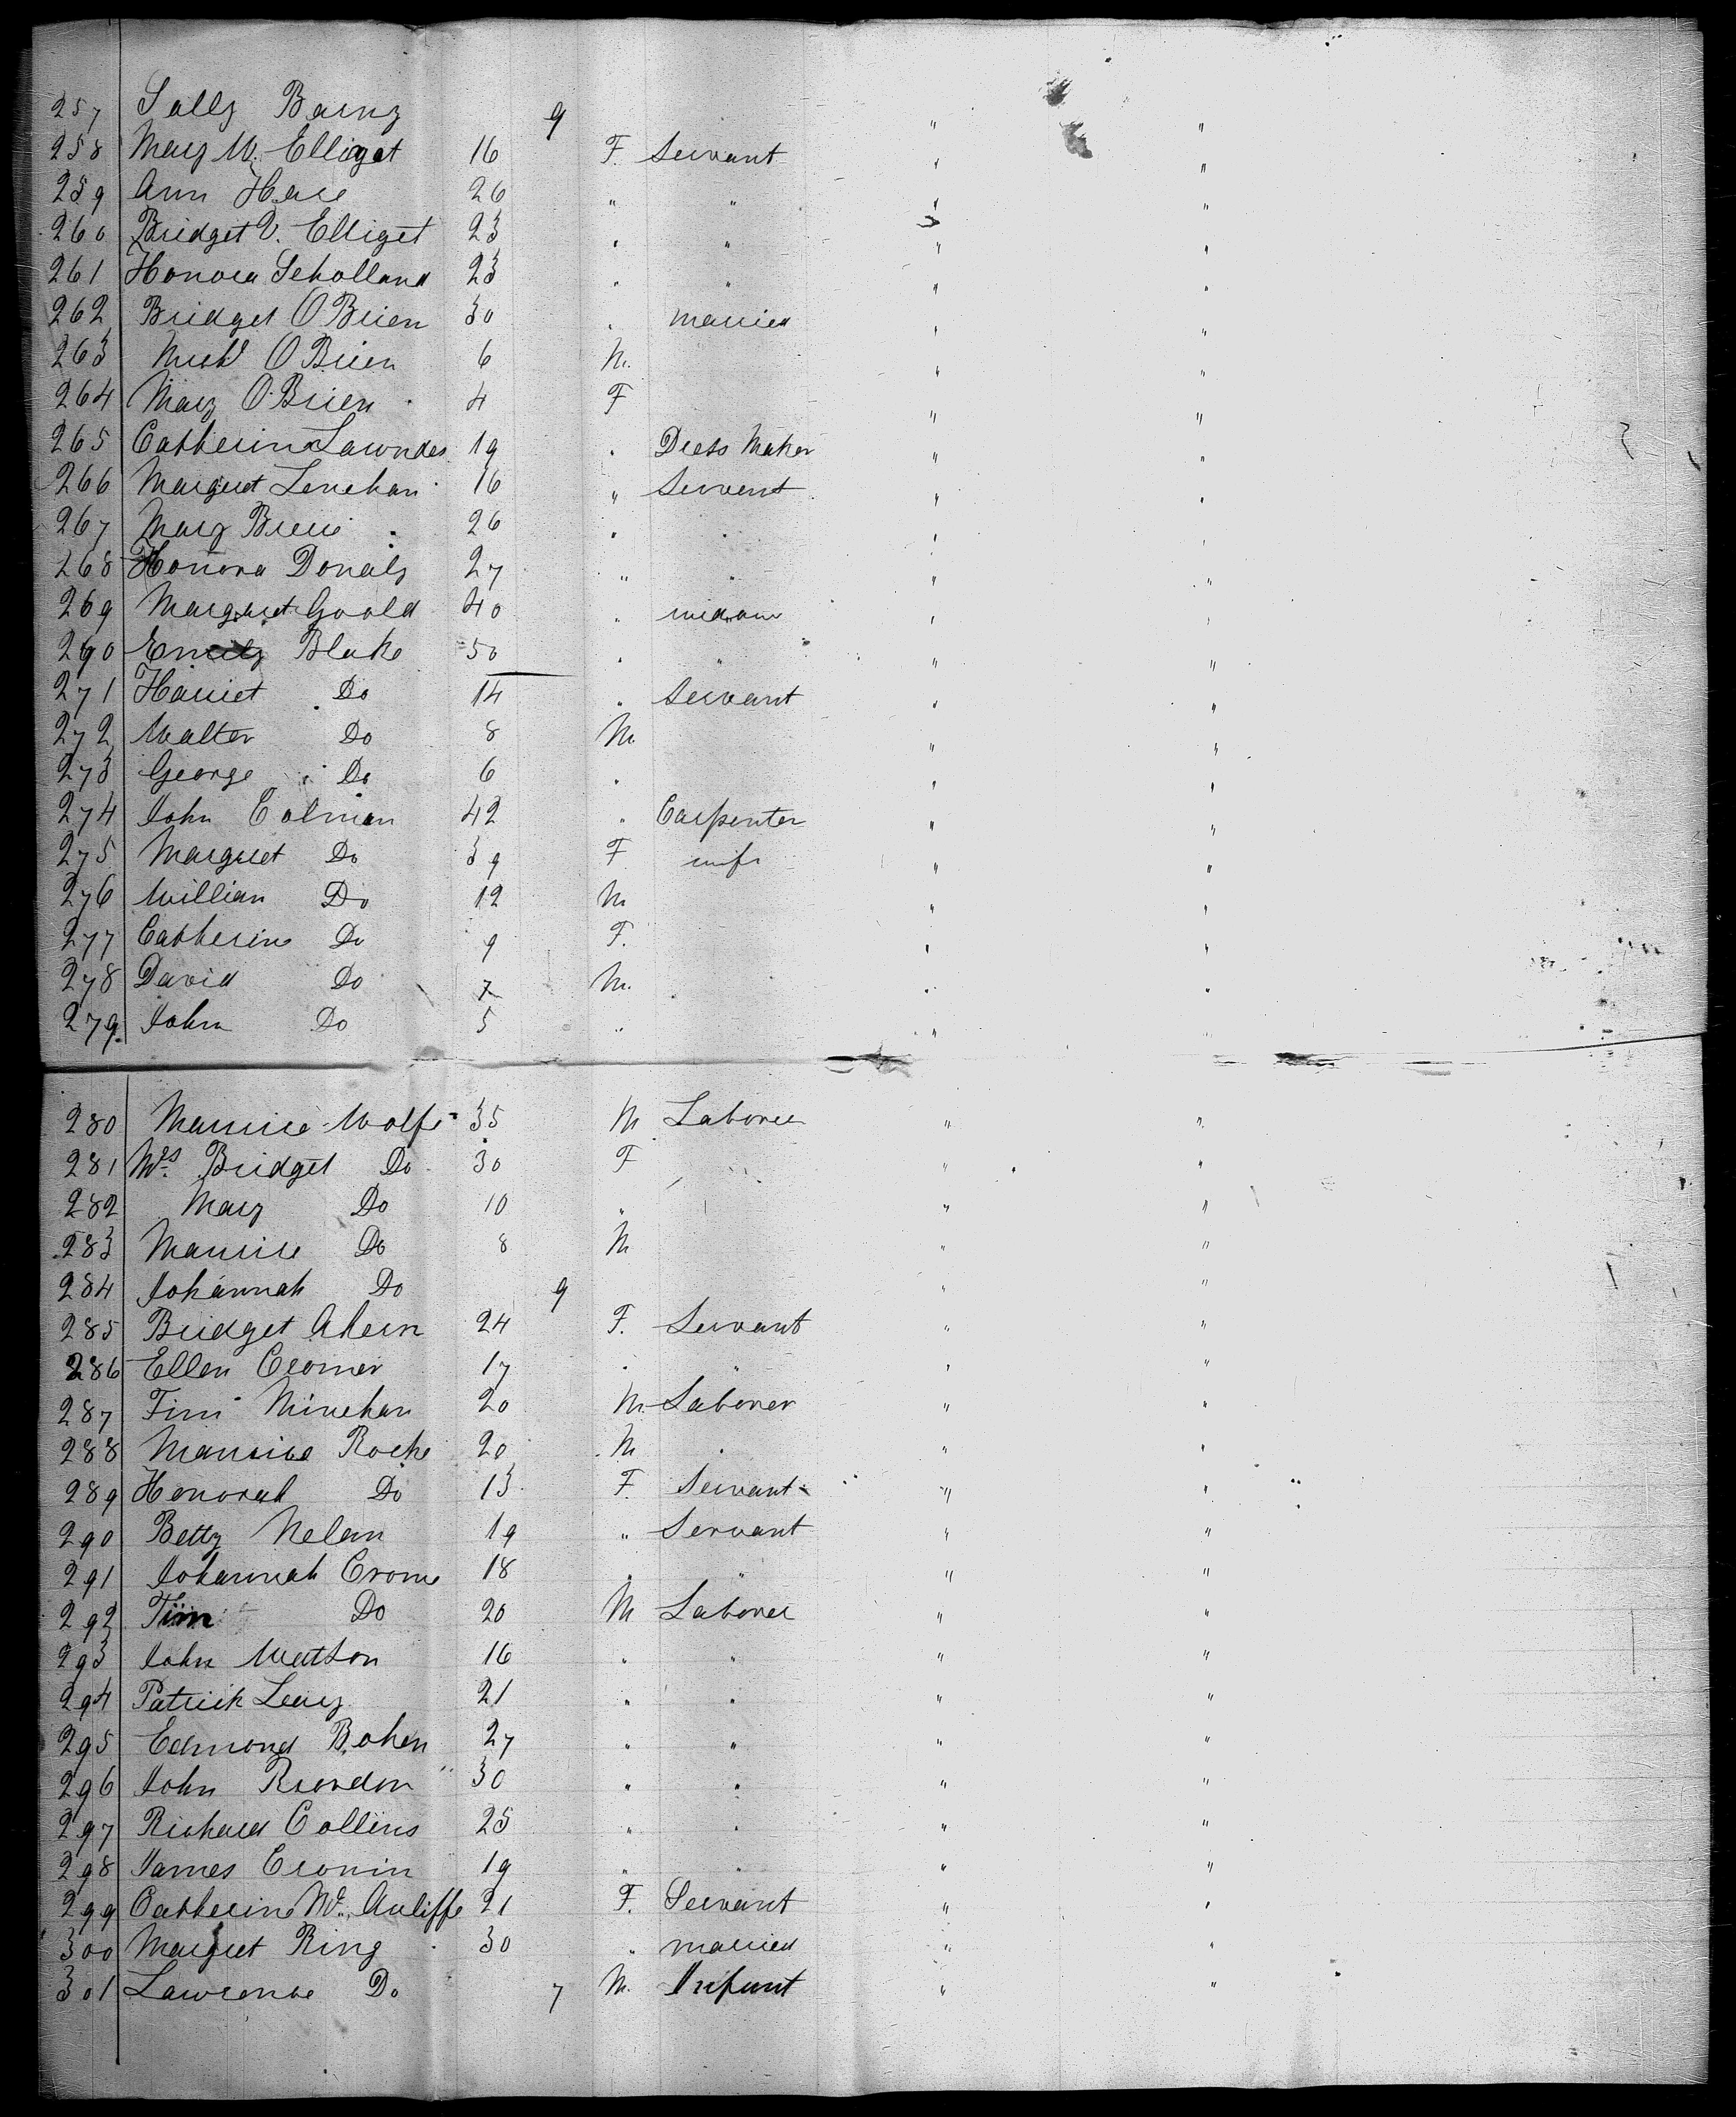 257 Sally Barry 9 " "
258 Mary Mc. Elligot 16 F. Servant " "
259 Ann Hare 26 " " " "
260 Bridget V. Elliget 23 " " " "
261 Honora Scholland 23 " " " "
262 Bridget O Brien 30 " married " "
263 Michl O Brien 6 M. " "
264 Mary O.Brien 4 F " "
265 Catherine Lawndes 19 " Dress Maker " "
266 Margret Lenehan 16 " Servent " "
267 Mary 26 " " " "
268 Honora Donaly 27 " " " "
269 Margaret Goold 40 " widow " "
290 Emily Blake 50 " " " "
271 Harriet Do 14 " Servant " "
272 Walter Do 8 M. " "
273 George Do 6 " " "
274 John Colman 42 " Carpenter " "
275 Margret Do 39 F wife " "
276 William Do 12 M " "
277 Catherine Do 9 F. " "
278 David Do 7 M. " "
279. John Do 5 " " "
280 Maurice Wolfe 35 M Laborer " "
281 Mrs Bridget Do 30 F " "
282 Mary Do 10 " " "
283 Maurice Do 8 M " "
284 Johannah Do 9 " "
285 Bridget Ahern 24 F. Servant " "
286 Ellen Cromer 17 " " " "
287 Tim Minehan 20 M. Laborer " "
288 Maurice Roche 20 M " " "
289 Honorah Do 13 F. Servant " "
290 Betty Nelan 19 " Servant " "
291 Johannah Crome 18 " " " "
292 Tim Do 20 M Laborer " "
293 John Watson 16 " " " "
294 Patrick Leary 21 " " " "
295 Edmond Bohen 27 " " " "
296 John Riordon 30 " " " "
297 Richard Collins 25 " " " "
298 James Cronin 19 " " " "
299 Catherine Mc. Auliffe 21 F. Servant " "
300 Margret Ring 30 " married " "
301 Lawrence Do 7 M. Infant " "